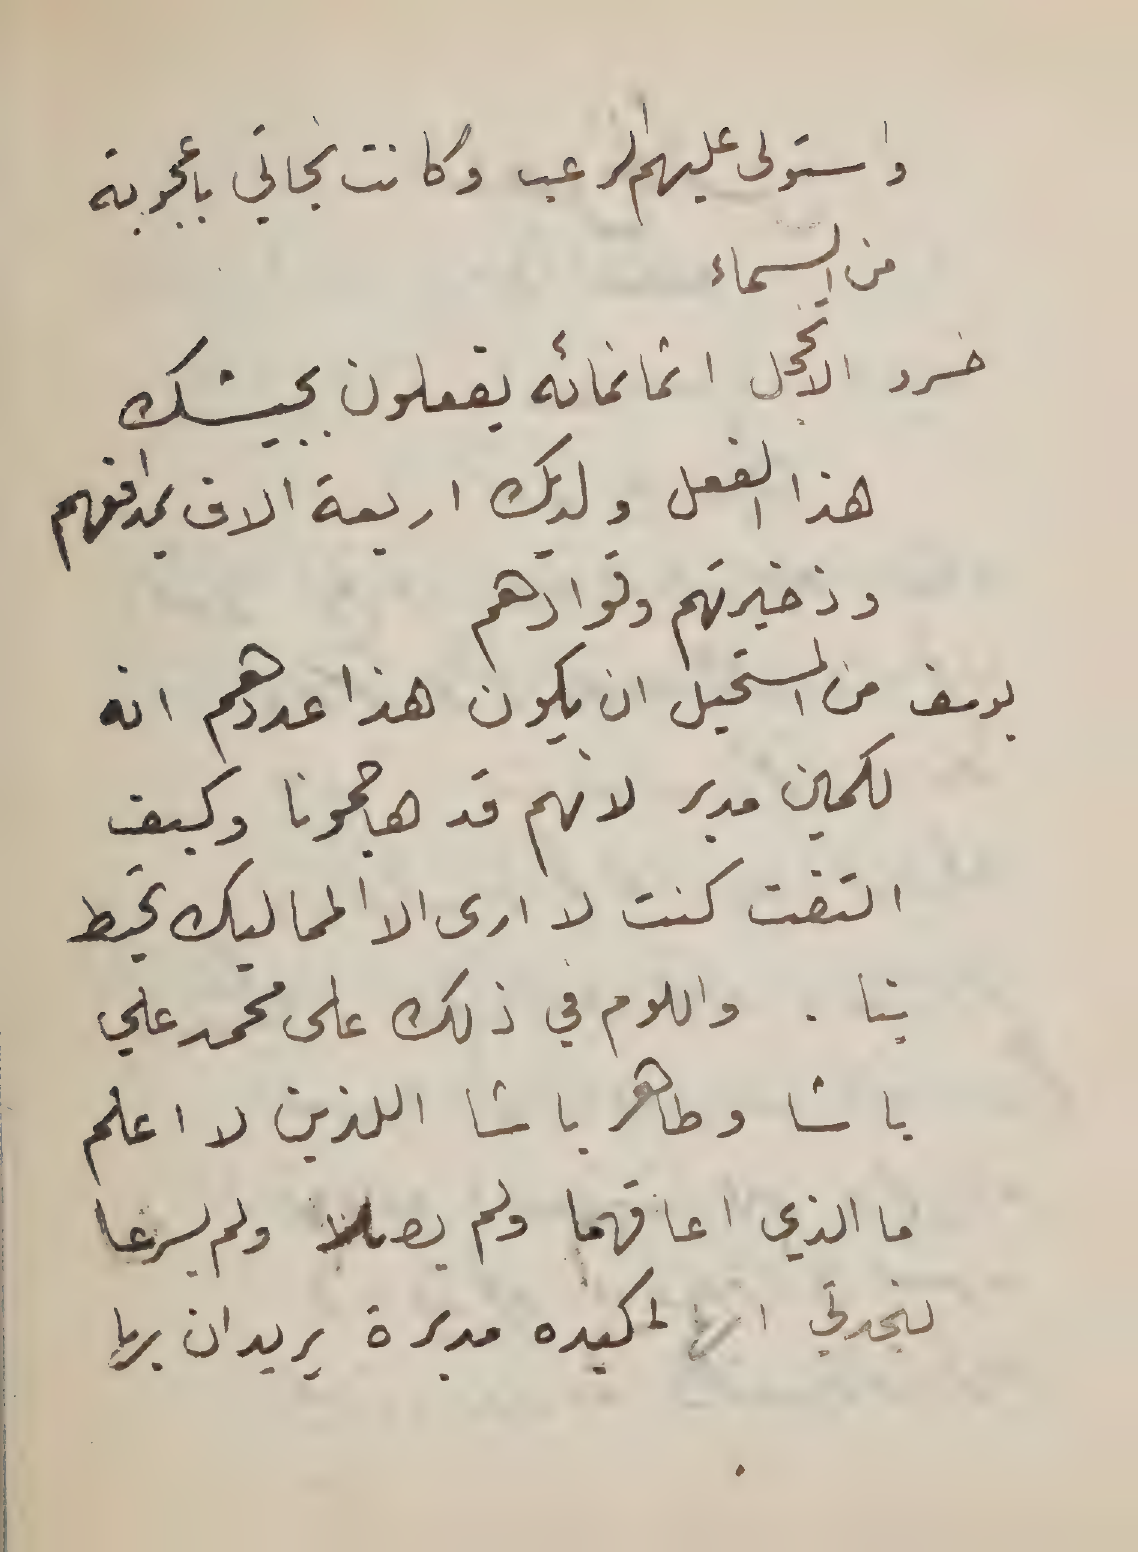 واستولى عليهم الرعب وكانت نجاتي باعجوبة
من السماء
خسرو الا تخجل اثمانمائه يفعلون بجيشك
هذا الفعل ولديك اربعة الاف بمدافعهم
وذخيرتهم وقوادهم
يوسف من المستحيل ان يكون هذا عددهم انه
لكمين مدبر لانهم قد هاجمونا وكيف
التفت كنت لا ارى الا المماليك تحيط
بنا . واللوم في ذلك على محمد علي
باشا وطاهر باشا اللذين لا اعلم
ما الذي اعاقهما ولم يصلا ولم يسرعا
لنجدتي انها لمكيده مدبرة يريدان بها